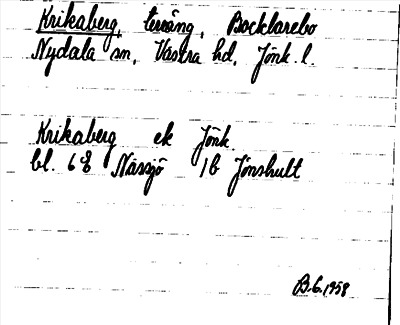 Krikaberg, terräng, Bocklarebo
Nydala sn, Västra hd, Jönk. l.
Krikaberg ek Jönk.
bl. 6 E Nässjö 1b Jönshult
B.G. 1958